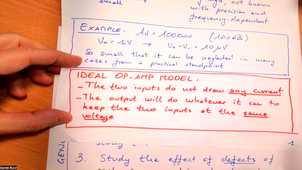 small
not known
with precision and
frequency-dependent
EXAMPLE:
V₀ = 1V → V₊ - V₋ = 10μV
So small that it can be neglected in many
cases from a practical standpoint
IDEAL OP-AMP MODEL:
- The two inputs do not draw any current
- The output will do whatever it can to
keep the two inputs at the same
voltage
3. Study the effect of defects of